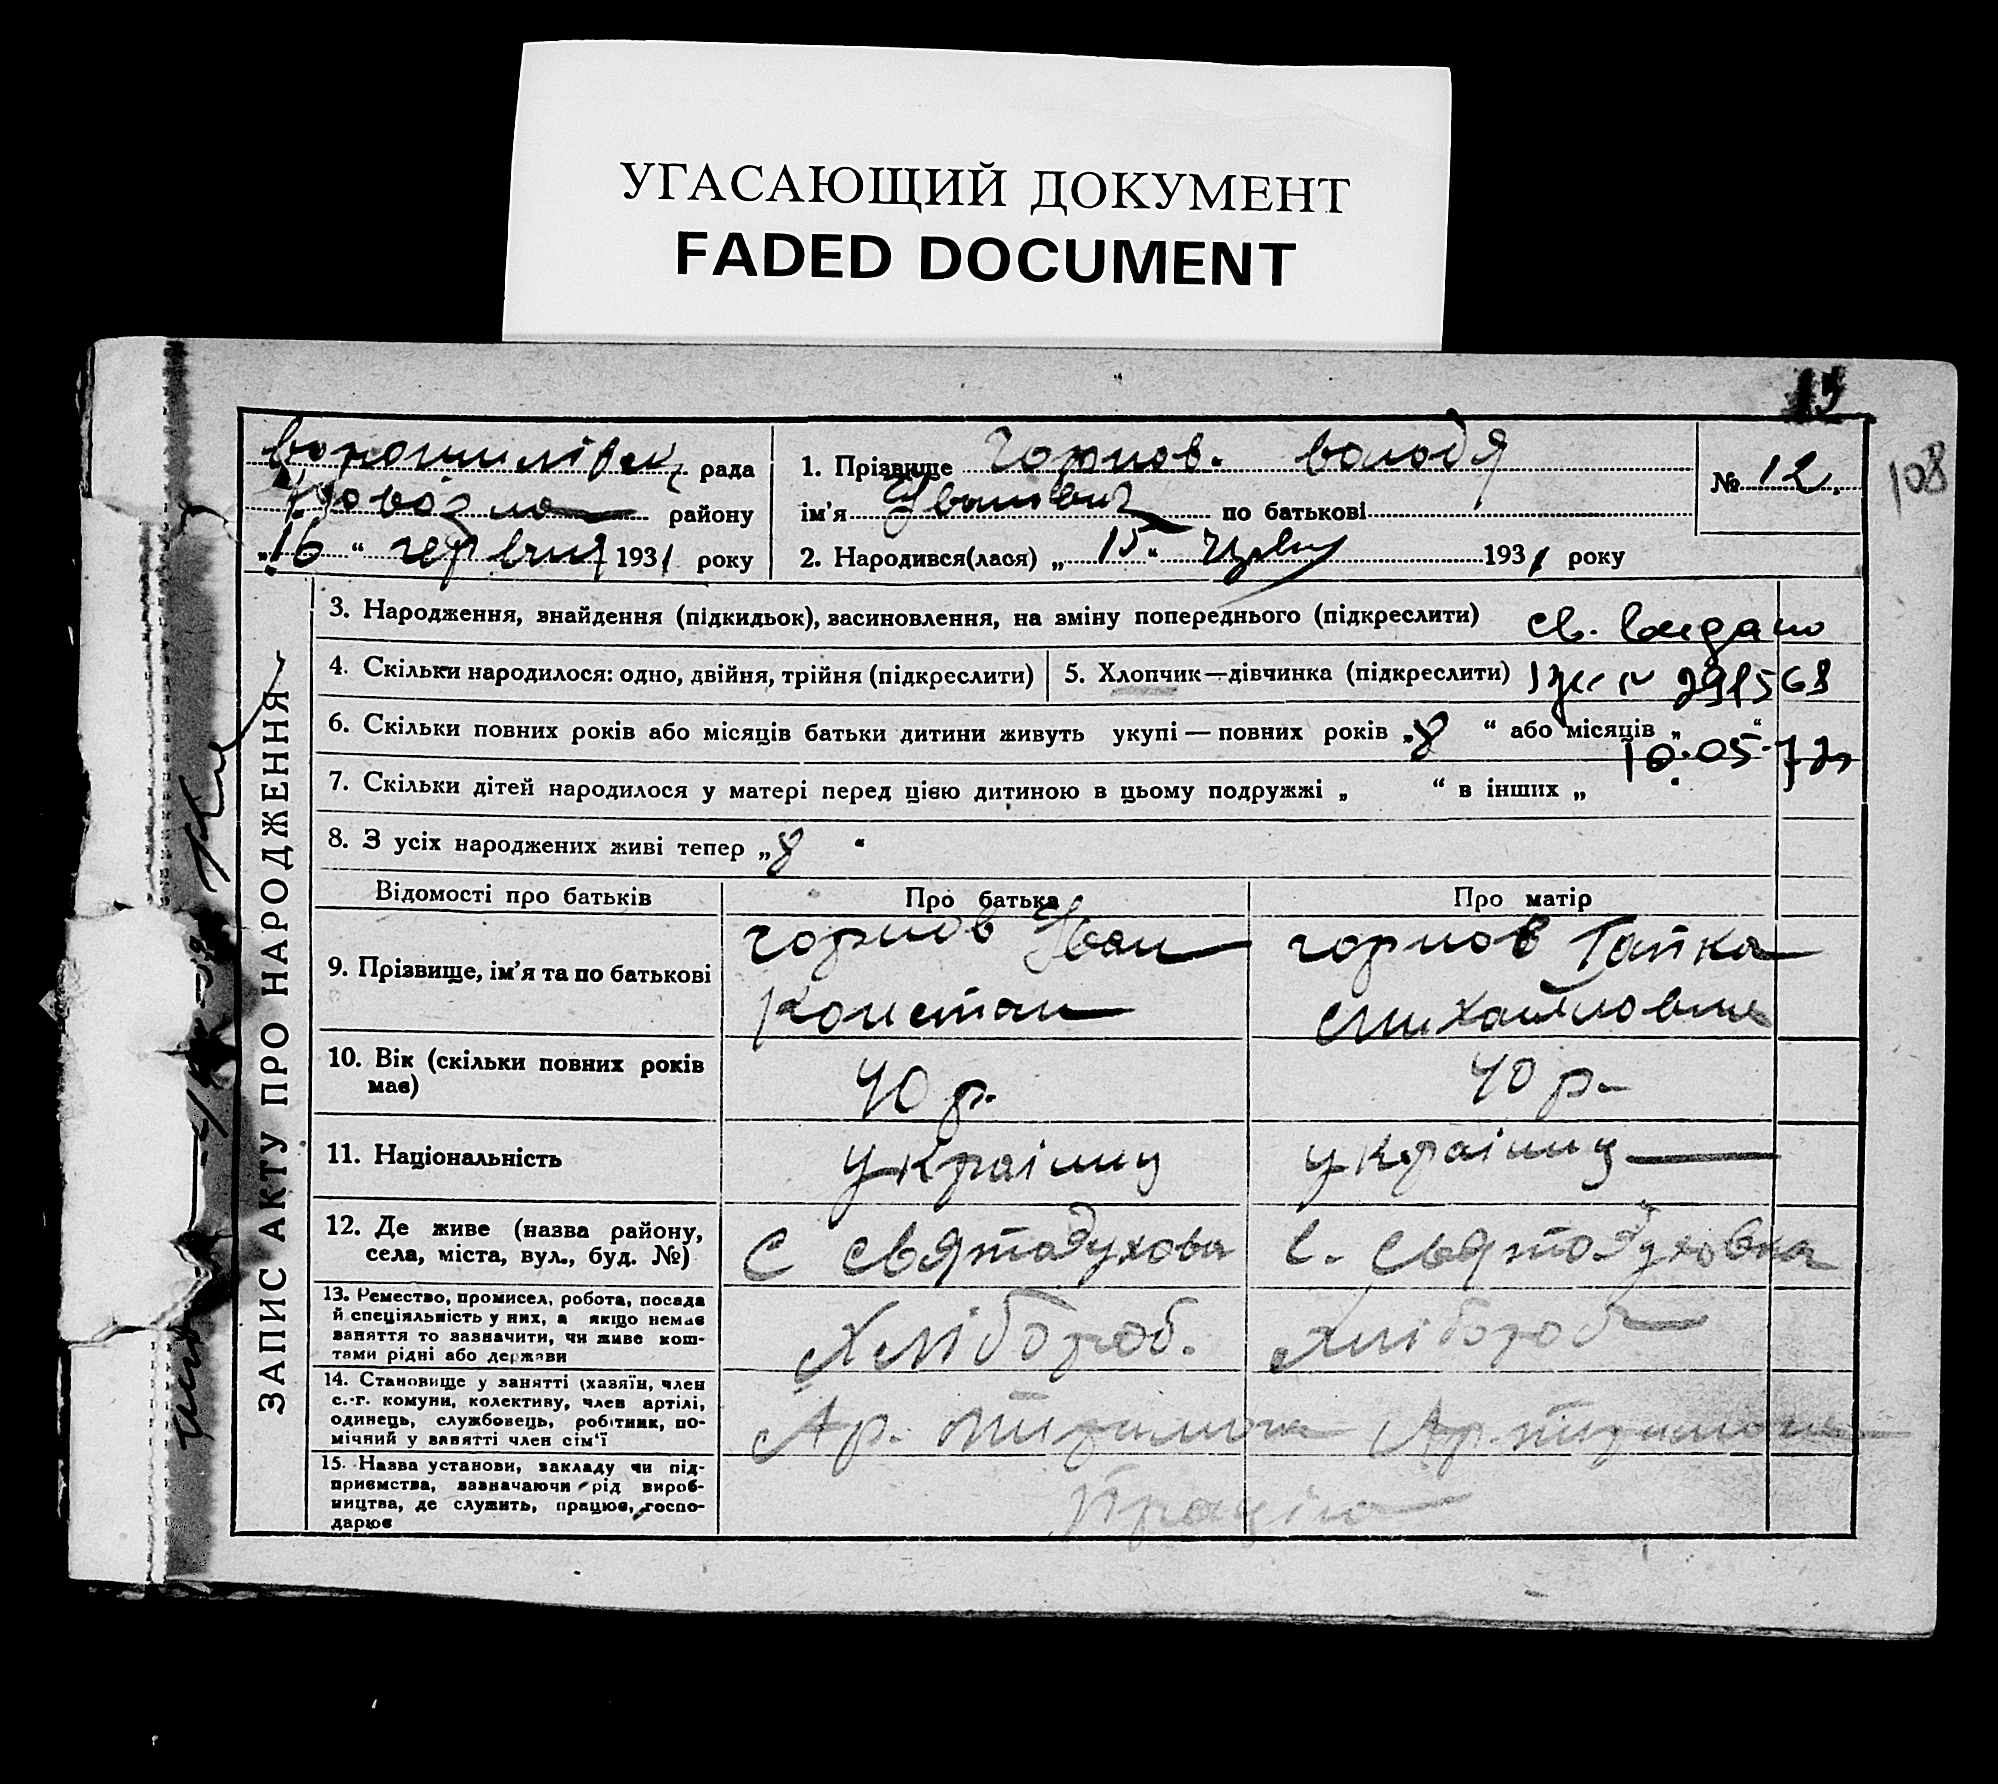 УГАСАЮЩИЙ ДОКУМЕНТ
FADED DOCUMENT
15
108
рада
району
„16“ червня 1931 року
1. Прізвище Горпов. володя
ім'я Іванович по батькові
2. Народився(лася) „15“ червн 1931 року
№ 12.
ЗАПИС АКТУ ПРО НАРОДЖЕННЯ
3. Народження, знайдення (підкидьок), засиновлення, на зміну попереднього (підкреслити) св. видано
4. Скільки народилося: одно, двійня, трійня (підкреслити)
5. Хлопчик—дівчинка (підкреслити) № 291568
6. Скільки повних років або місяців батьки дитини живуть укупі — повних років „8“ або місяців „ “
10.05.72
7. Скільки дітей народилося у матері перед цією дитиною в цьому подружжі „ “ в інших „
8. З усіх народжених живі тепер „8 “
Відомості про батьків Про батька Про матір
9. Прізвище, ім'я та по батькові
горпов Іван
Констан
горпов Гапка
Михайловна
10. Вік (скільки повних років має)
40 р. 40 р.
11. Національність
україниц україниц
12. Де живе (назва району,
села, міста, вул., буд. №)
С Святодухова с. Святодуховка
13. Ремество, промисел, робота, посада
й спеціяльність у них, а якщо немає
заняття то зазначити, чи живе кош-
тами рідні або держави
Хлібороб. хлібороб
14. Становище у занятті (хазяїн, член
с.-г. комуни, колективу, член артілі,
одинець, службовець, робітник, по-
мічний у занятті член сім'ї
15. Назва установи, закладу чи під-
приємства, зазначаючи рід вироб-
ництва, де служить, працює, госпо-
дарює